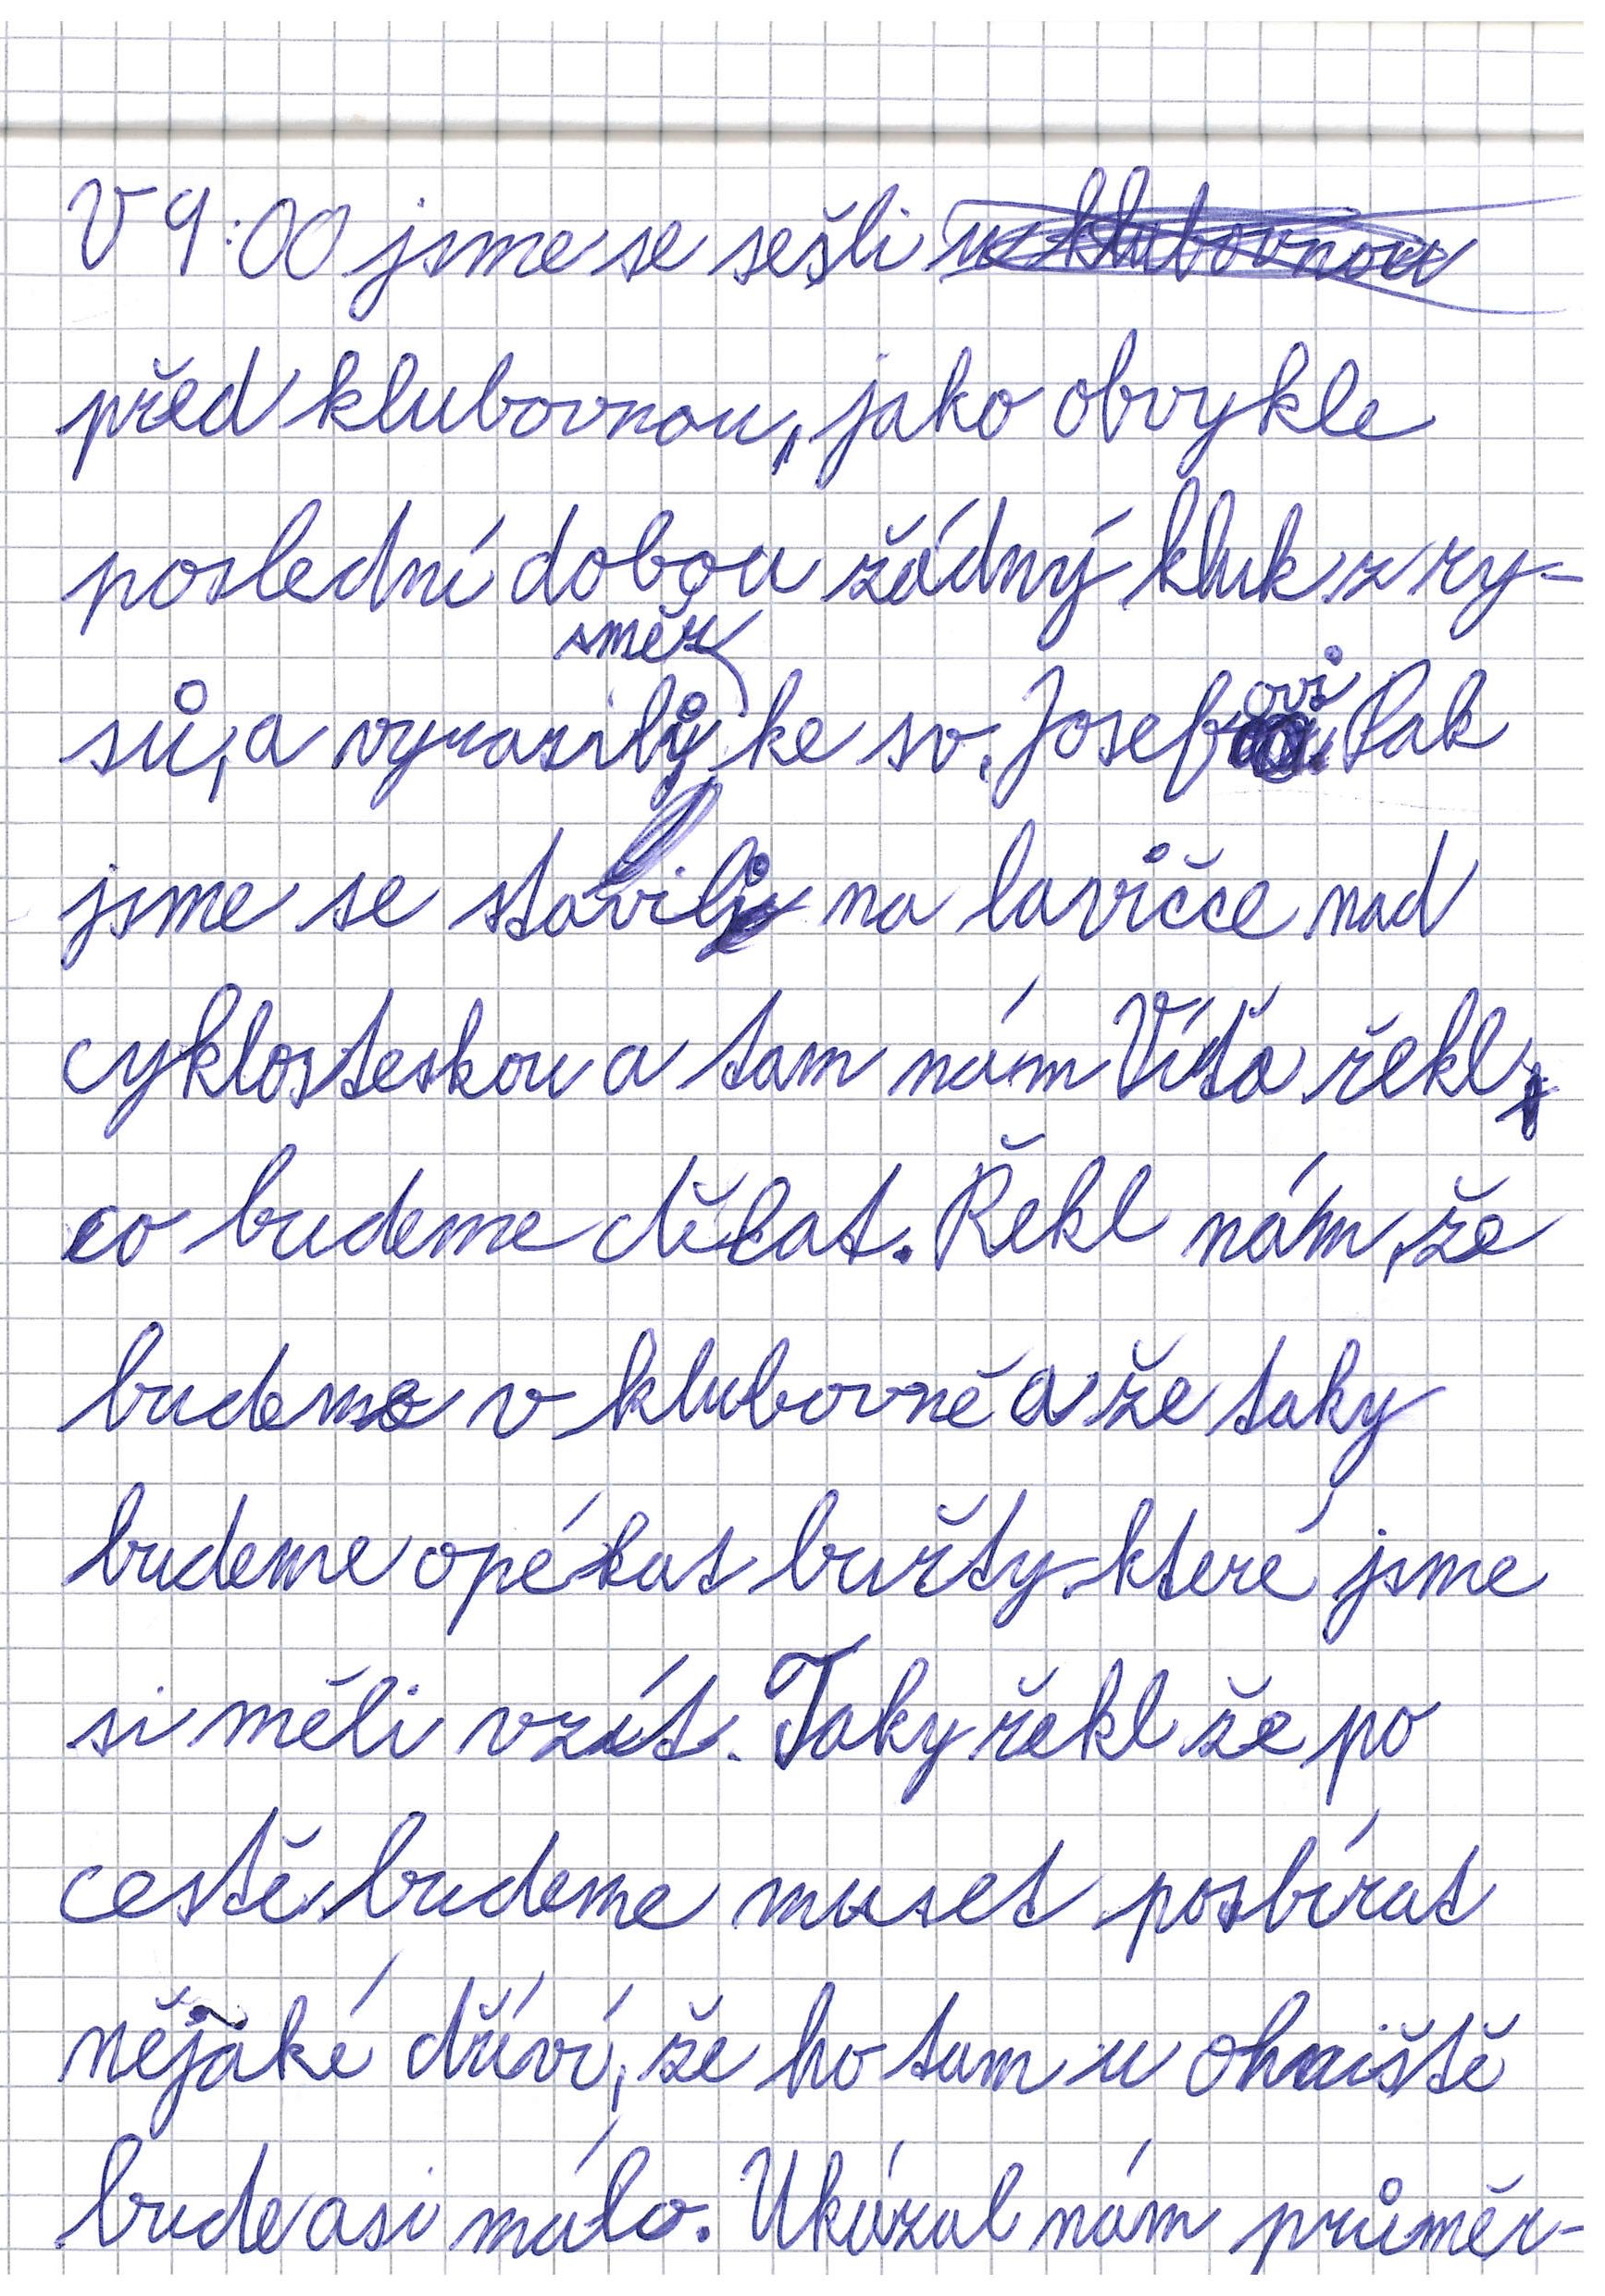 V 9:00 jsme se sešli
před klubovnou, jako obvykle
poslední dobou žádný kluk z ry-
sů, a vyrazili směr ke sv. Josefovi. Pak
jsme se stavili na lavičce nad
cyklosteskou a tam nám Víťa řekl,
co budeme dělat. Řekl nám, že
budeme v klubovně a že taky
budeme opékat buřty které jsme
si měli vzít. Taky řekl že po
cestě budeme muset posbírat
nějaké dříví, že ho tam u ohniště
bude asi málo. Ukázal nám průměr-